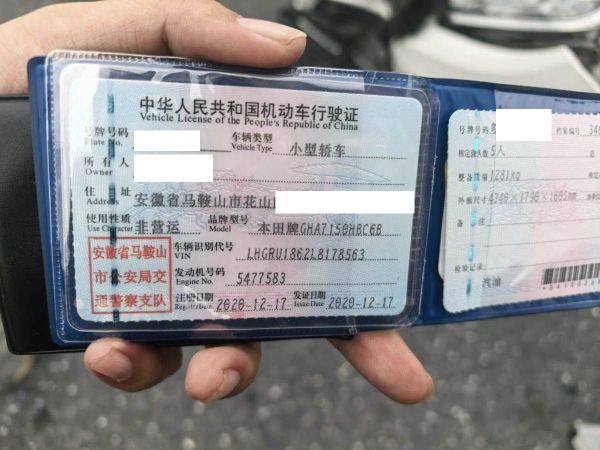 中华人民共和国机动车行驶证
Vehicle License of the People's Republic of China
号牌号码
Plate No.
车辆类型
Vehicle Type
小型轿车
所有人
Owner
住址
Address
安徽省马鞍山市花山
使用性质
Use Character
非营运
品牌型号
Model
本田牌GHA7150HBC6B
安徽省马鞍山
市公安局交
通警察支队
车辆识别代号
VIN
LHGRU1862L8178563
发动机号码
Engine No.
5477583
注册日期
Register Date
2020-12-17
发证日期
Issue Date
2020-12-17
号牌号码
档案编号
340
核定载人数
5人
总
整备质量
1281kg
核
外廓尺寸
4340×1790×1605
备注
检验记录
汽油